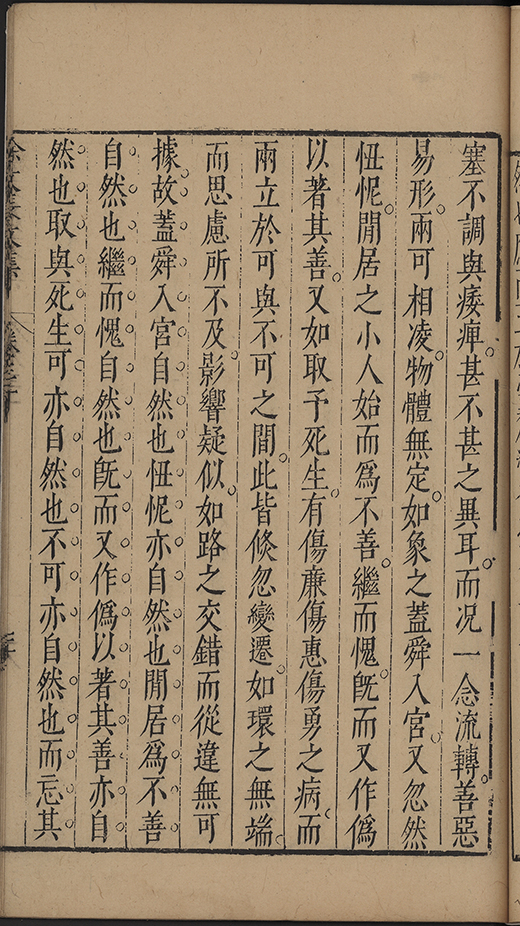 塞不調與痿痺甚不甚之異耳而况一念流轉善惡
易形兩可相凌物體無定如象之蓋舜入宮又忽然
忸怩閒居之小人始而爲不善繼而愧旣而又作僞
以著其善又如取予死生有傷廉傷惠傷勇之病而
兩立於可與不可之間此皆倐忽變遷如環之無端
而思慮所不及影響疑似如路之交錯而從違無可
據故蓋舜入宮自然也忸怩亦自然也閒居爲不善
自然也繼而愧自然也旣而又作僞以著其善亦自
然也取與死生可亦自然也不可亦自然也而忘其